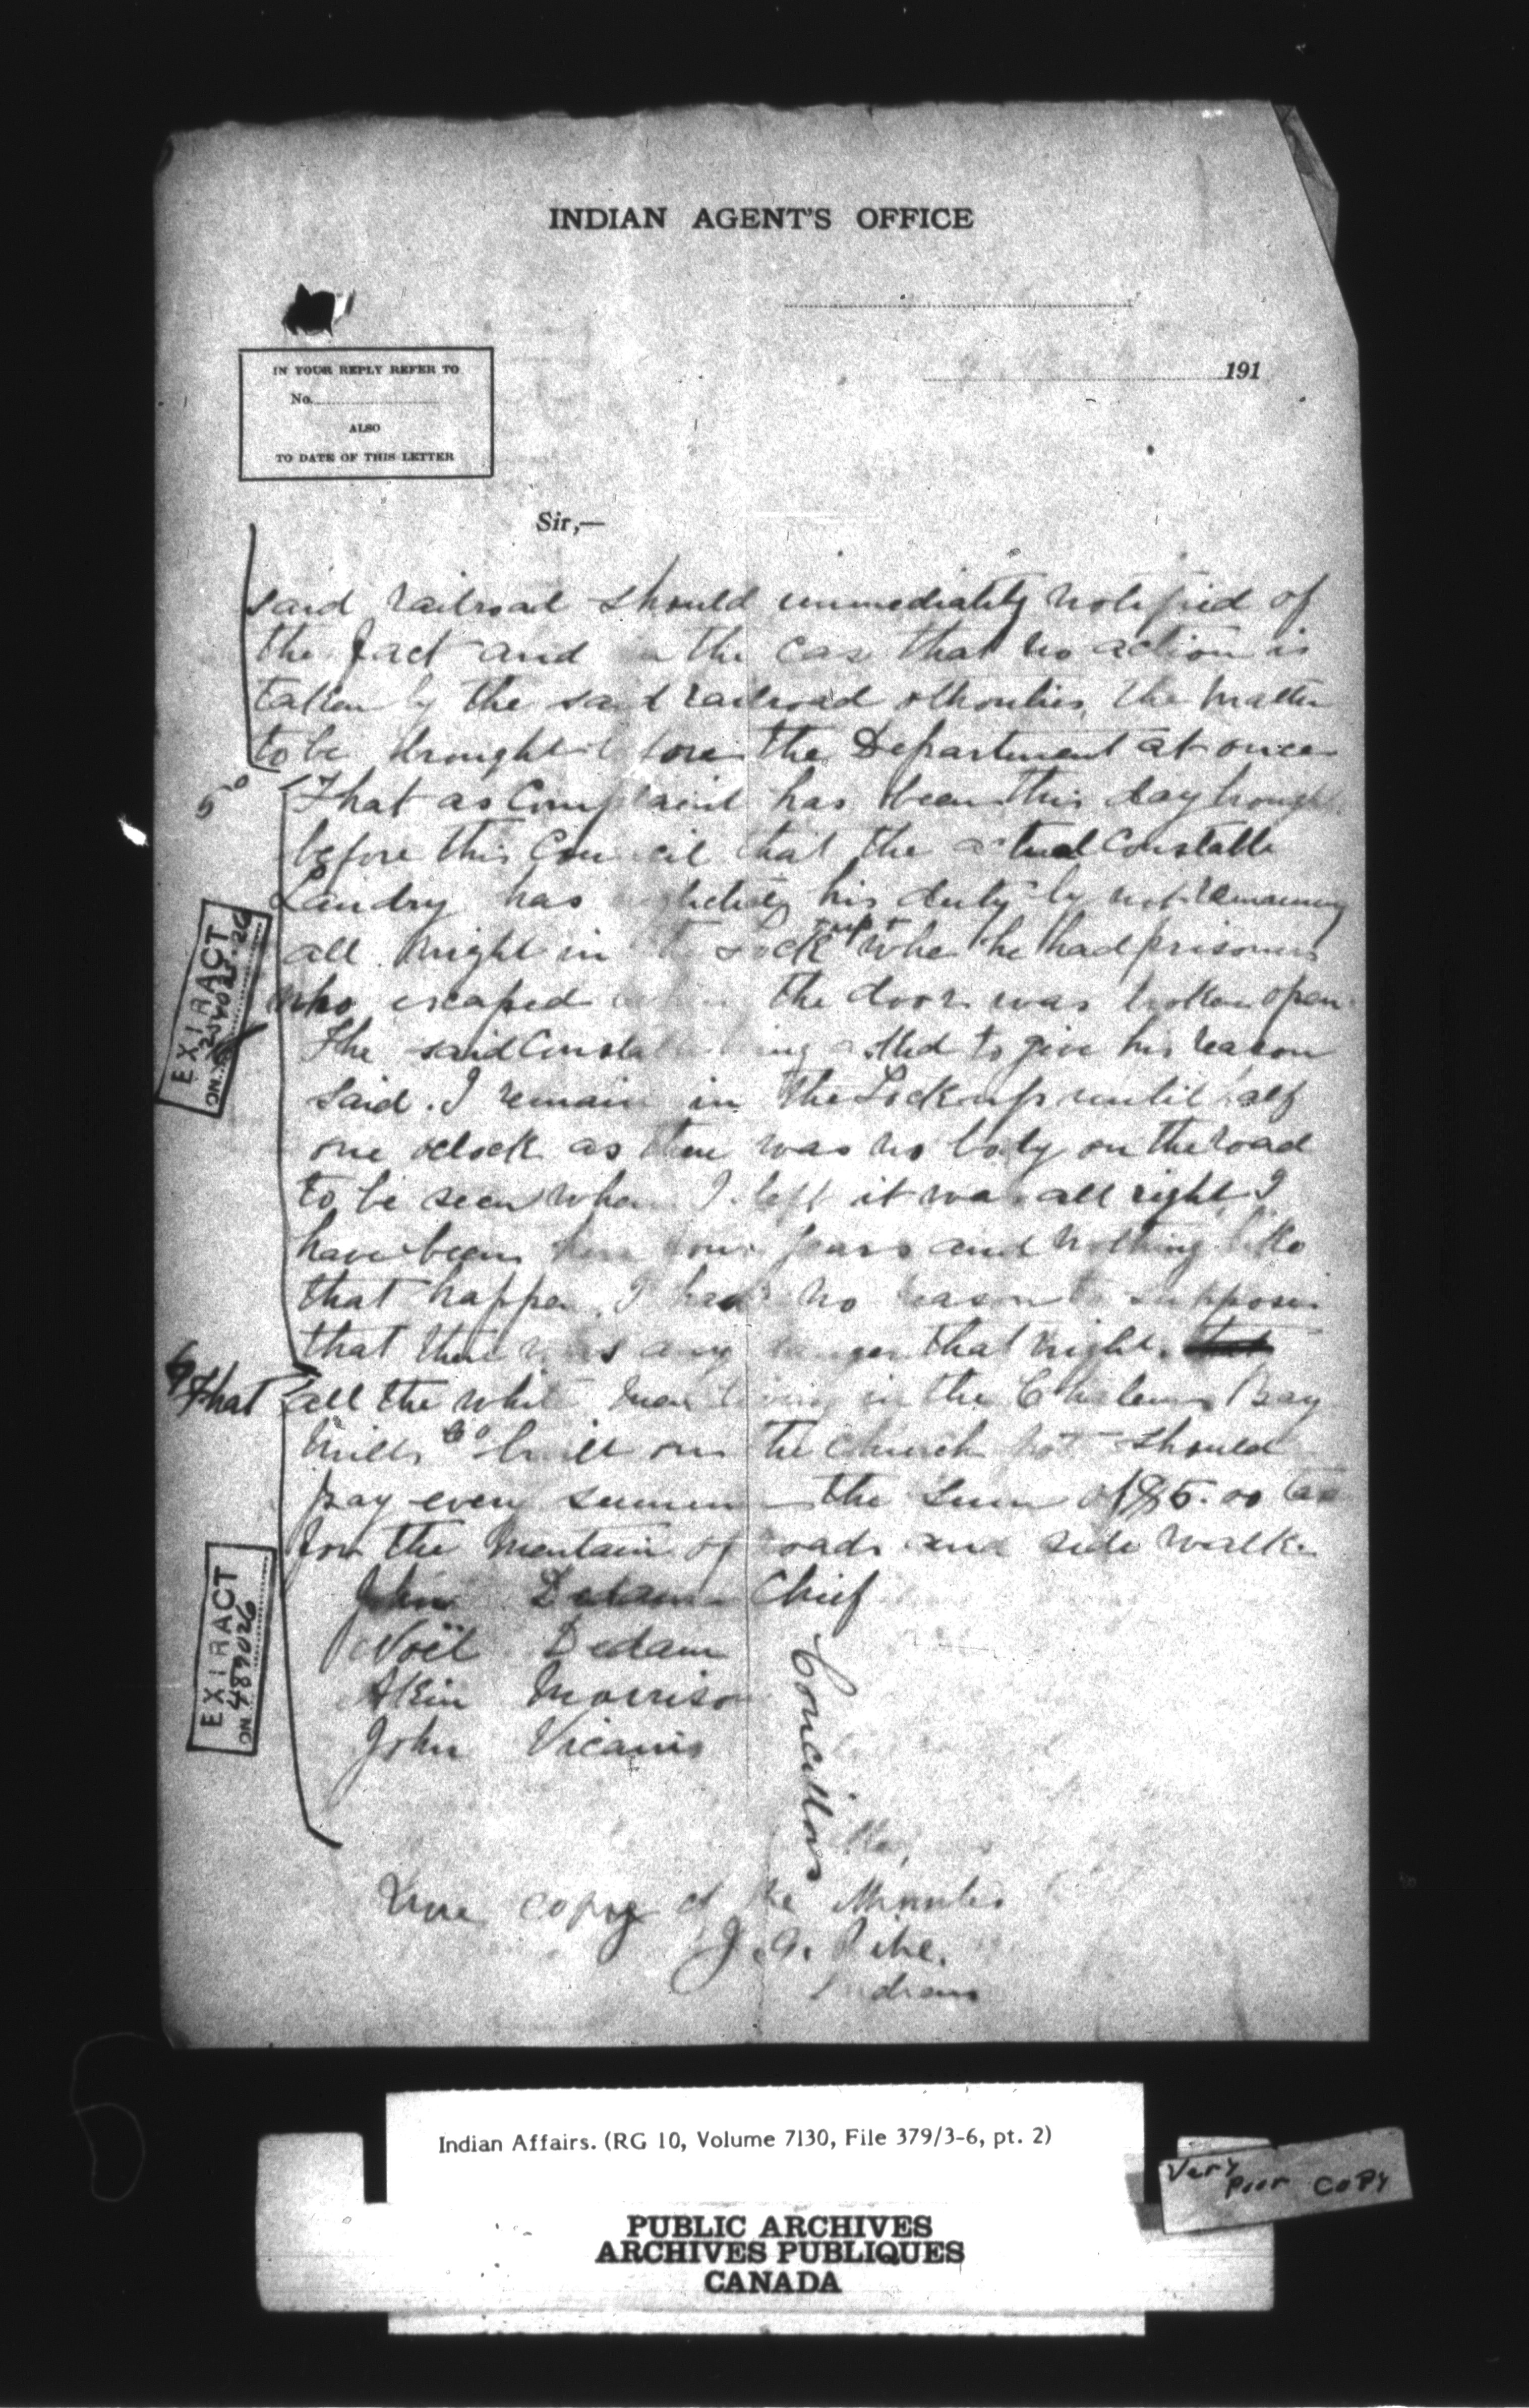 INDIAN AGENT'S OFFICE
191
IN YOUR REPLY REFER TO
No.
ALSO
TO DATE OF THIS LETTER
Sir,—
said railroad should immediatity notified of
the fact and in the cas that no action is
taken by the said railroad othorities the matter
to be brought before the Department at once
5° That as Complaint has been this day brought
before this Council that the actual Constable
Landry has his duty by not remaining
all night in the Lock up when he had prisoners
who escaped the door was broken open.
The said Constable being asked to give his reason
said. I remain in the Lockup until half
one oclock as there was no body on the road
to be seen when I left it was all right I
have been here four years and nothing like
that happen. I had no reason to suppose
that there was any danger that night.
6 That all the white men living in the Chaleurs Bay
Mills Co built on the church lot should
pay every summer the sum of $5.00 tax
for the mentain of roads and side walk.
John Dedam Chief
Noël Dedam
Morrison
John Vicaire
Councillors
EXTRACT
ON
EXTRACT
ON 489026
True copy of the Minutes
J. A. Pitre.
Indian
Indian Affairs. (RG 10, Volume 7130, File 379/3-6, pt. 2)
Very
Poor COPY
PUBLIC ARCHIVES
ARCHIVES PUBLIQUES
CANADA